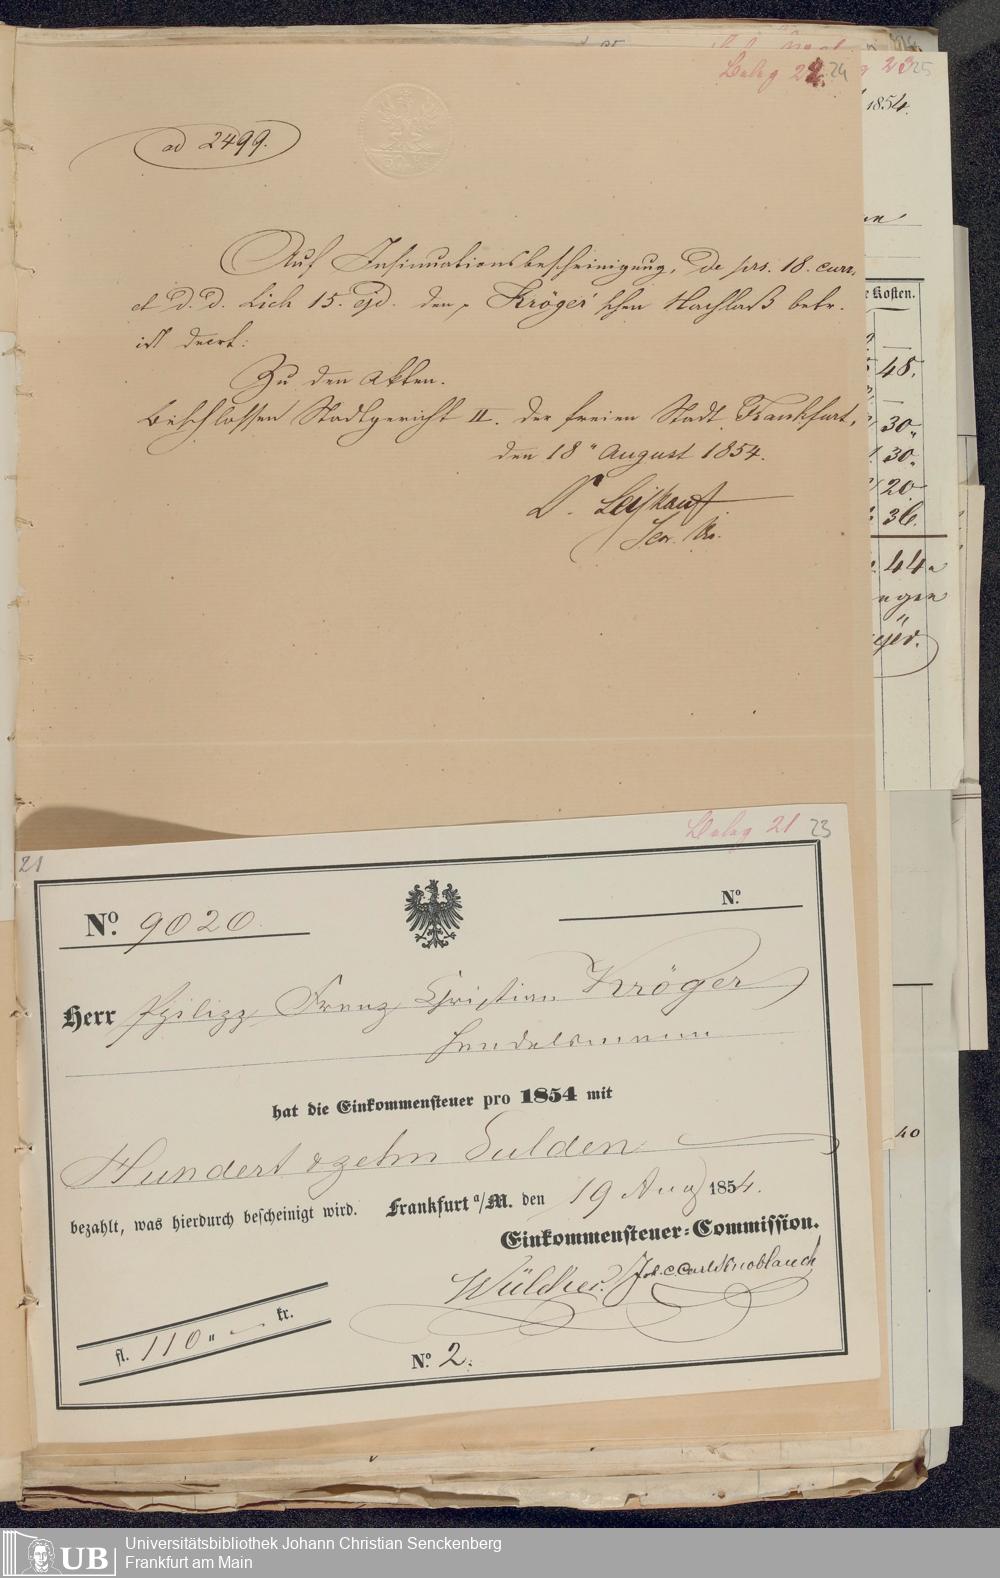 Beleg 22. 24
23 25
1854.
ad 2499.
Auf Insinuationsbescheinigung, de prs. 18. curr.
et d. d. Lich 15. ejd. den Kröger'schen Nachlaß betr.
ist decret:
Zu den Akten.
Beschlossen Stadtgericht II. der freien Stadt Frankfurt,
den 18 August 1854.
Kosten.
48.
30.
30.
20.
36.
44
40
Beleg 21 23
21
No. 9020.
No.
Herr Philipp Franz Christian Kröger
Handelsmann
hat die Einkommensteuer pro 1854 mit
Hundert & zehn Gulden
bezahlt, was hierdurch bescheinigt wird. Frankfurt a/M. den 19 Aug 1854.
Einkommensteuer-Commission.
Joh. C. Carl Knoblauch
fl. 110 " — kr.
No. 2.
UB
Universitätsbibliothek Johann Christian Senckenberg
Frankfurt am Main